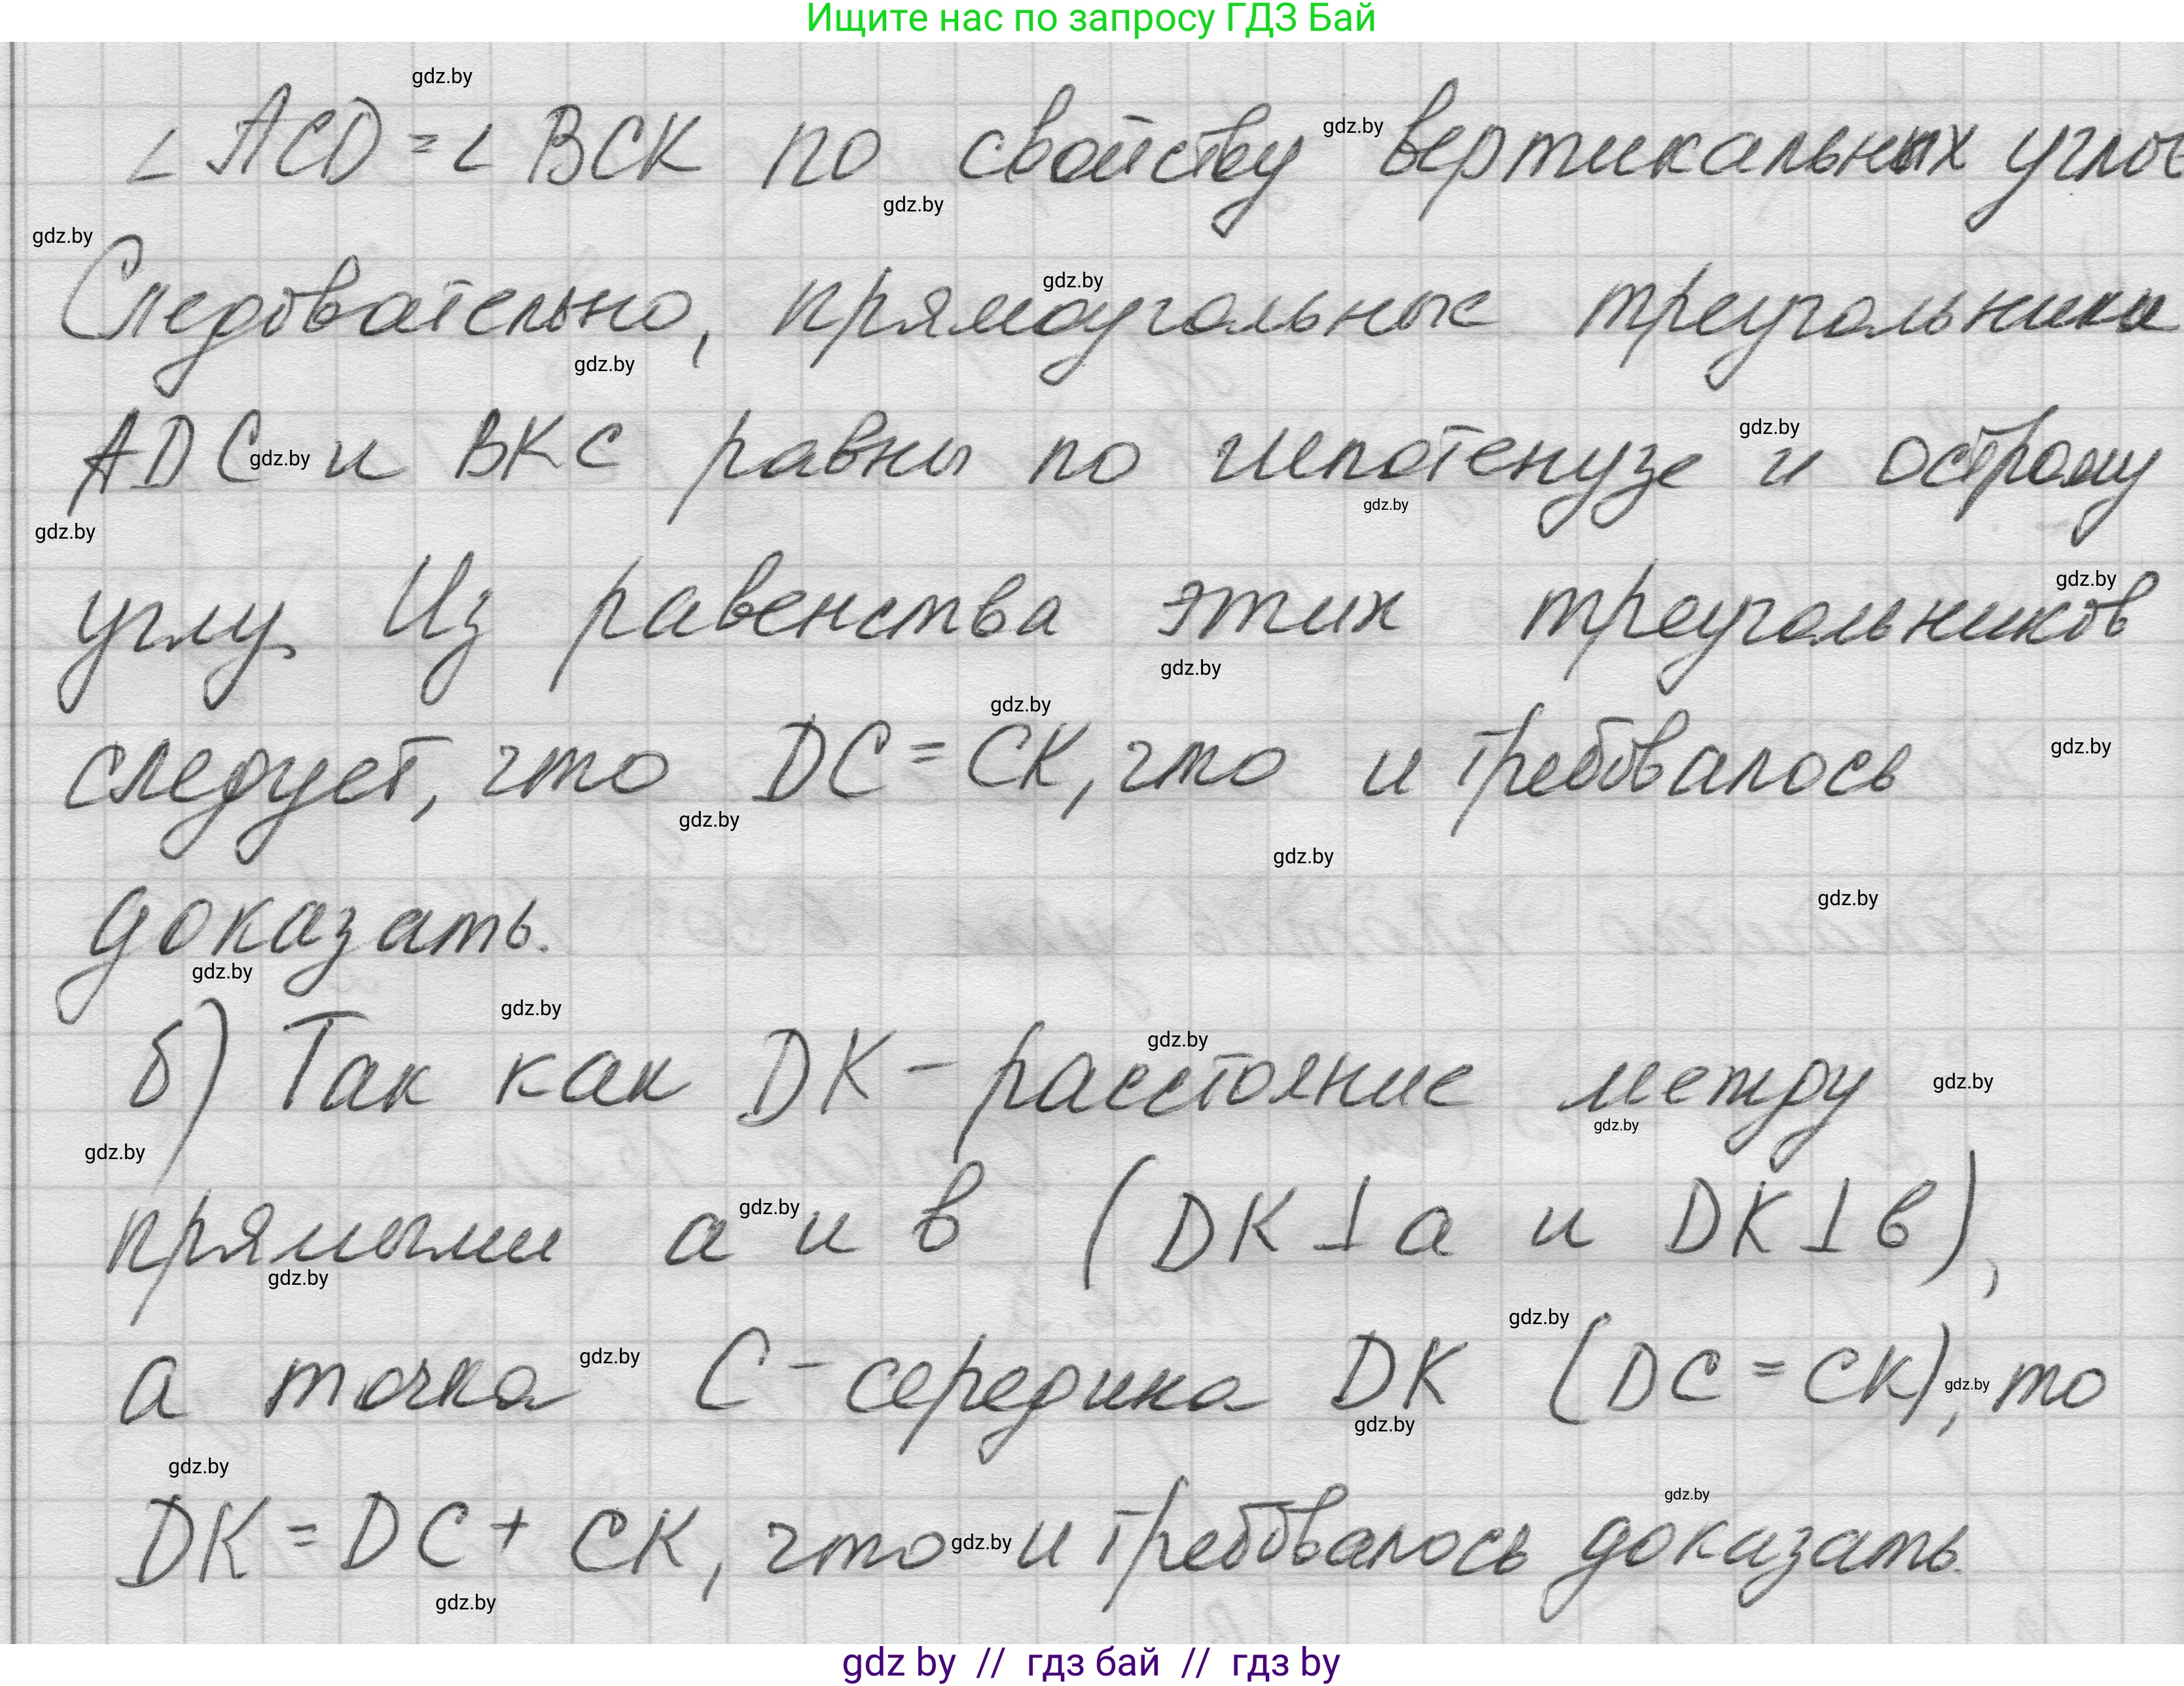 Ищите нас по запросу ГДЗ Бай
gdz.by
∠ ACD = ∠ BCK по свойству gdz.by вертикальных углов
gdz.by
gdz.by
gdz.by
Следовательно, прямоугольные треугольники
gdz.by
gdz.by
ADC gdz.by и BKC равны по гипотенузе и острому
gdz.by
gdz.by
gdz.by
углу. Из равенства этих треугольников
gdz.by
gdz.by
следует, что DC = CK, что и требовалось
gdz.by
gdz.by
gdz.by
gdz.by
доказать.
gdz.by
gdz.by
gdz.by
б) Так как DK - расстояние между
gdz.by
gdz.by
gdz.by
прямыми a gdz.by и в (DK ⊥ a и DK ⊥ в),
gdz.by
gdz.by
а точка gdz.by C - середина DK (DC = CK), gdz.by то
gdz.by
gdz.by
gdz.by
DK = DC + CK, что gdz.by и требовалось доказать.
gdz.by
gdz by // гдз бай // гдз by